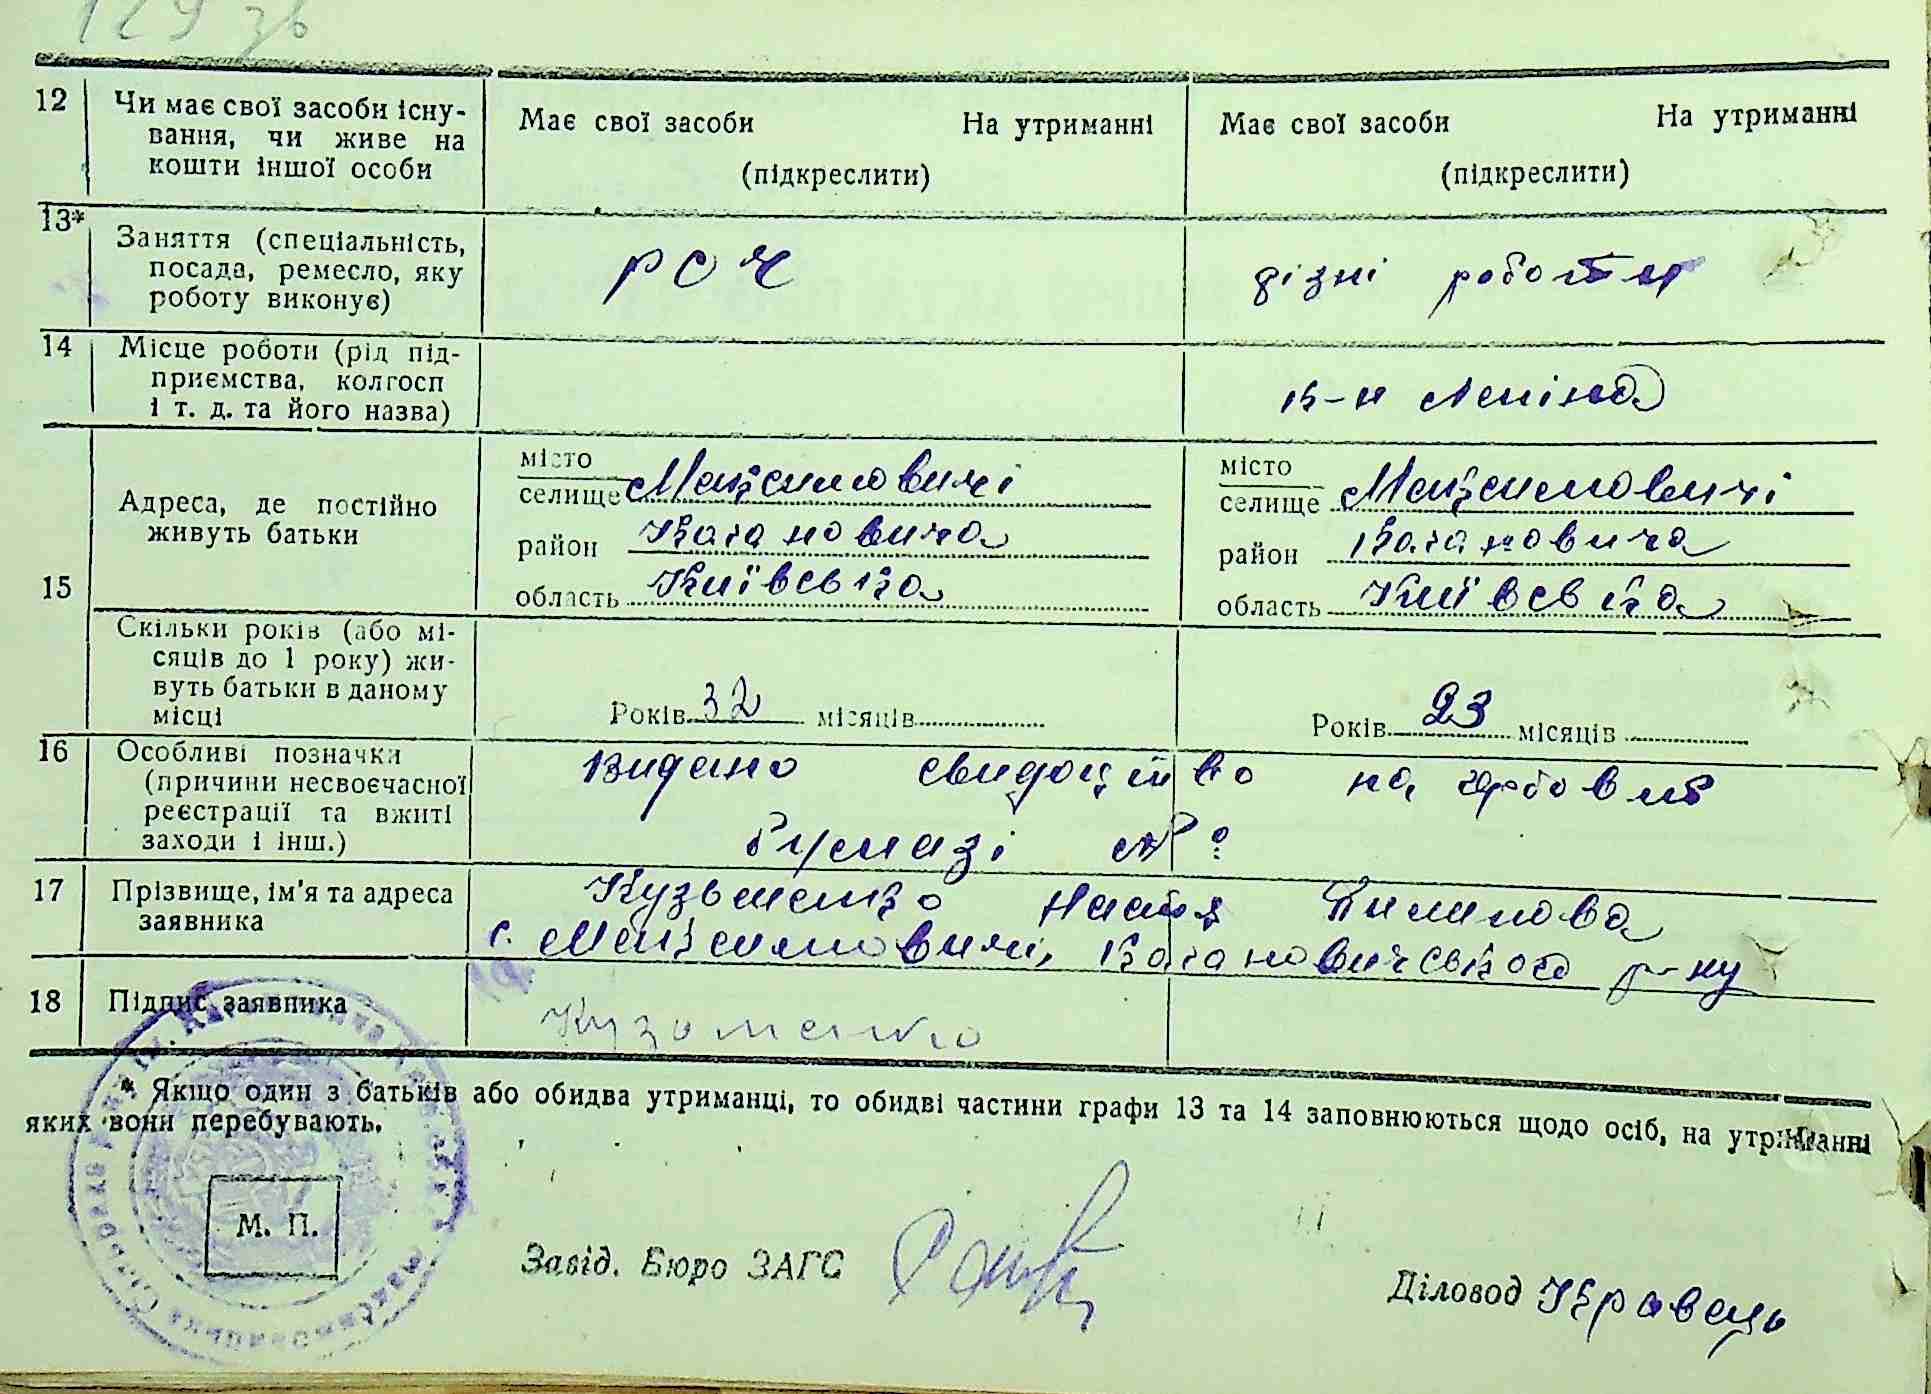 129 зв
12 Чи має свої засоби існу-
вання, чи живе на
кошти іншої особи
Має свої засоби На утриманні
(підкреслити)
Має свої засоби На утриманні
(підкреслити)
13* Заняття (спеціальність,
посада, ремесло, яку
роботу виконує)
РСЧ
різні роботи
14 Місце роботи (рід під-
приємства, колгосп
і т. д. та його назва)
к-п Леніна
15 Адреса, де постійно
живуть батьки
місто
селище Максимовичі
район Кагановича
область Київська
місто
селище Максимовичі
район Кагановича
область Київська
Скільки років (або мі-
сяців до 1 року) жи-
вуть батьки в даному
місці
Років 32 місяців
Років 23 місяців
16 Особливі позначки
(причини несвоєчасної
реєстрації та вжиті
заходи і інш.)
Видано свидоцтво на гербовій
бумазі №
17 Прізвище, ім'я та адреса
заявника
Кузьменко Настя Пилипова
с. Максимовичі, Кагановичського р-ну
18 Підпис заявника
Кузоменко
* Якщо один з батьків або обидва утриманці, то обидві частини графи 13 та 14 заповнюються щодо осіб, на утриманні
яких вони перебувають.
М. П.
Завід. Бюро ЗАГС
Діловод Кравець